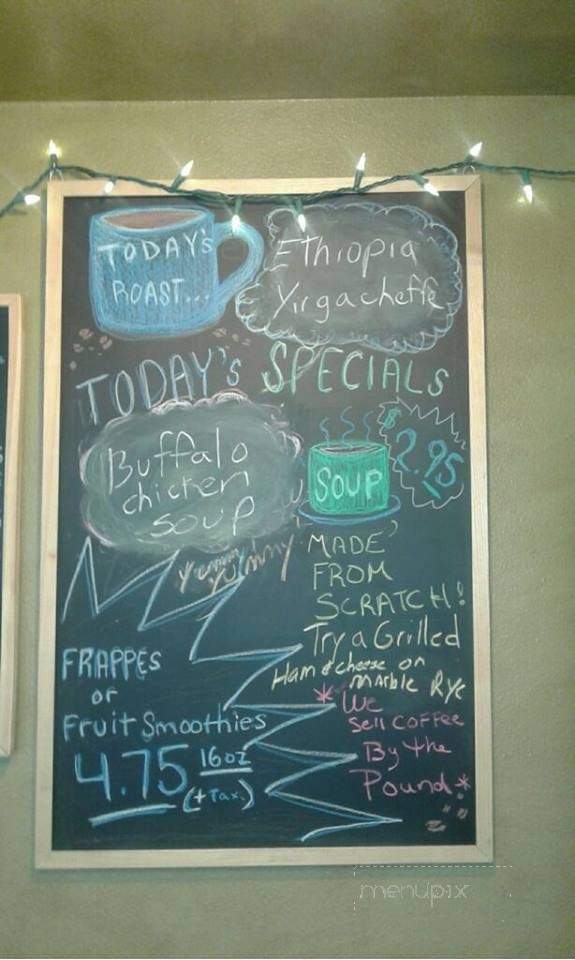 TODAY's
ROAST...
Ethiopia
Yirgacheffe
TODAY's SPECIALS
Buffalo
chicken
soup
SOUP
$2.95
Yummy!
yummy!
MADE
FROM
SCRATCH!
Try a Grilled
Ham & cheese on
marble Rye
FRAPPES
or
Fruit Smoothies
4.75 16oz
(+ Tax.)
*We
Sell COFFEE
By the
Pound*
menupix